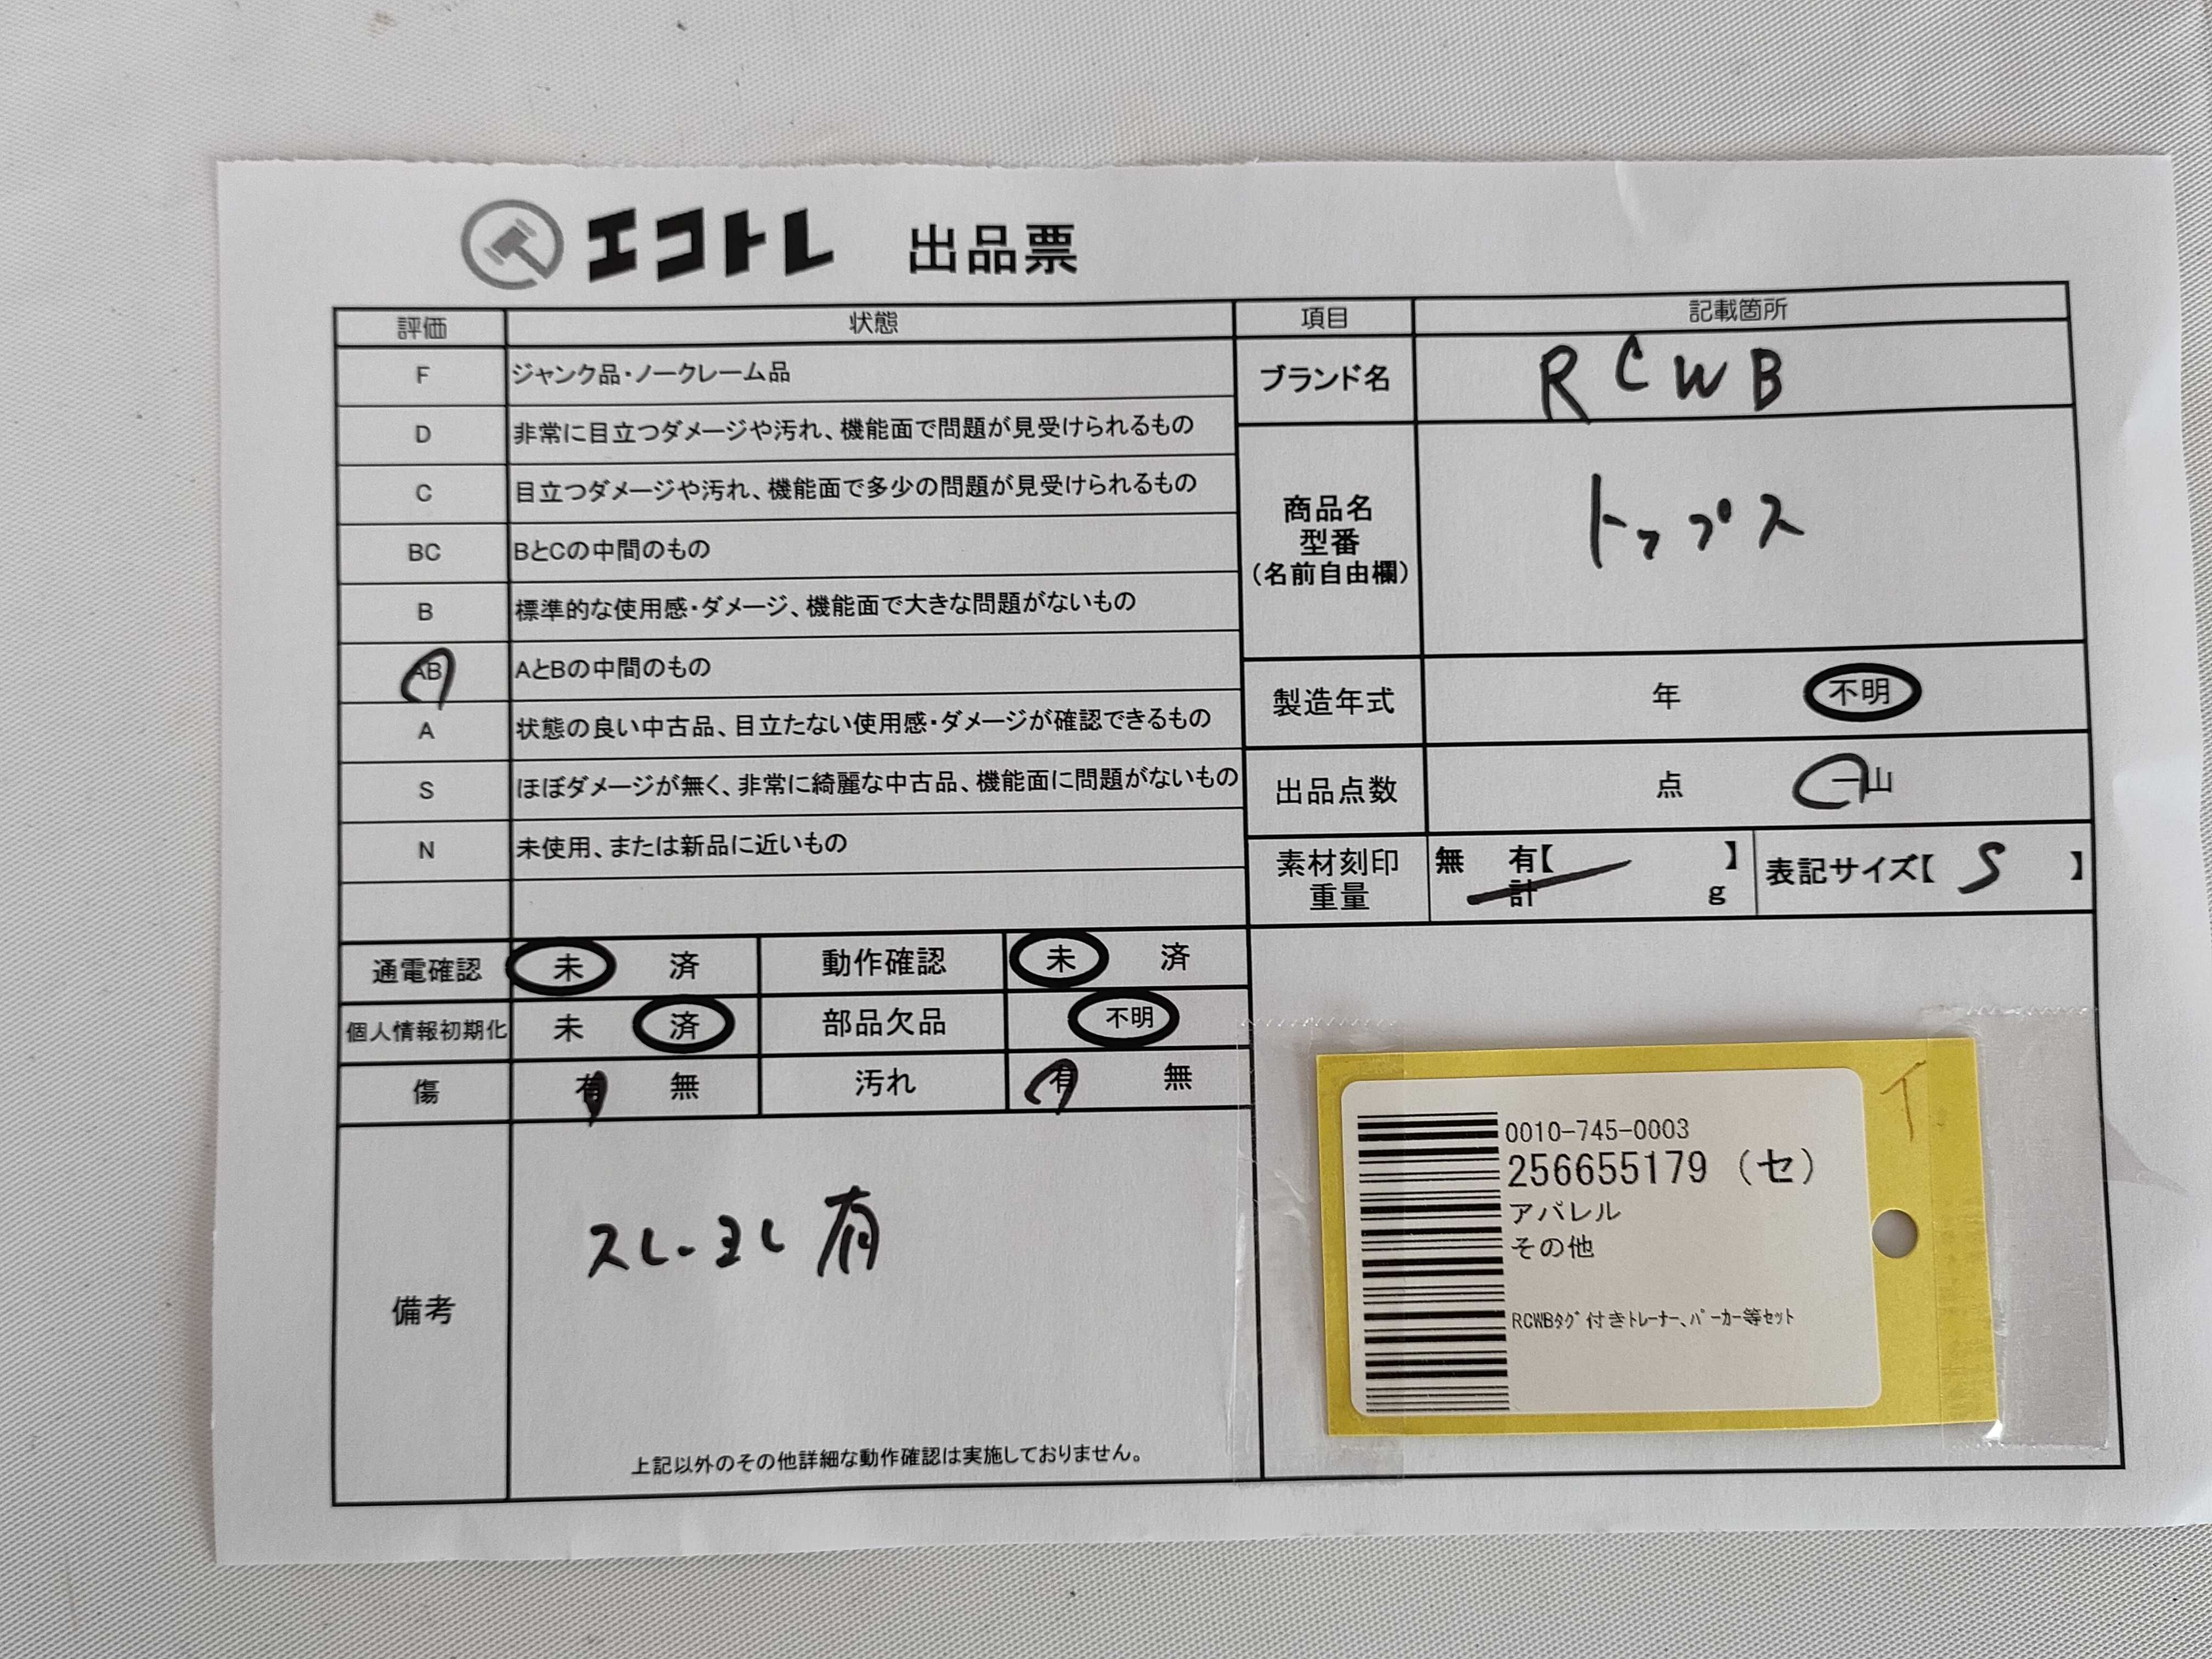 エコトレ 出品票
評価 状態
F ジャンク品・ノークレーム品
D 非常に目立つダメージや汚れ、機能面で問題が見受けられるもの
C 目立つダメージや汚れ、機能面で多少の問題が見受けられるもの
BC BとCの中間のもの
B 標準的な使用感・ダメージ、機能面で大きな問題がないもの
AB AとBの中間のもの
A 状態の良い中古品、目立たない使用感・ダメージが確認できるもの
S ほぼダメージが無く、非常に綺麗な中古品、機能面に問題がないもの
N 未使用、または新品に近いもの
通電確認 未 済 動作確認 未 済
個人情報初期化 未 済 部品欠品 不明
傷 有 無 汚れ 有 無
備考 スレ・ヨレ 有
上記以外のその他詳細な動作確認は実施しておりません。
項目 記載箇所
ブランド名 RCWB
商品名
型番
(名前自由欄)
トップス
製造年式 年 不明
出品点数 点 一山
素材刻印 無 有【 】
重量 計 g
表記サイズ【 S 】
0010-745-0003
256655179 (セ)
アパレル
その他
RCWBタグ付きトレーナー、パーカー等セット
イ